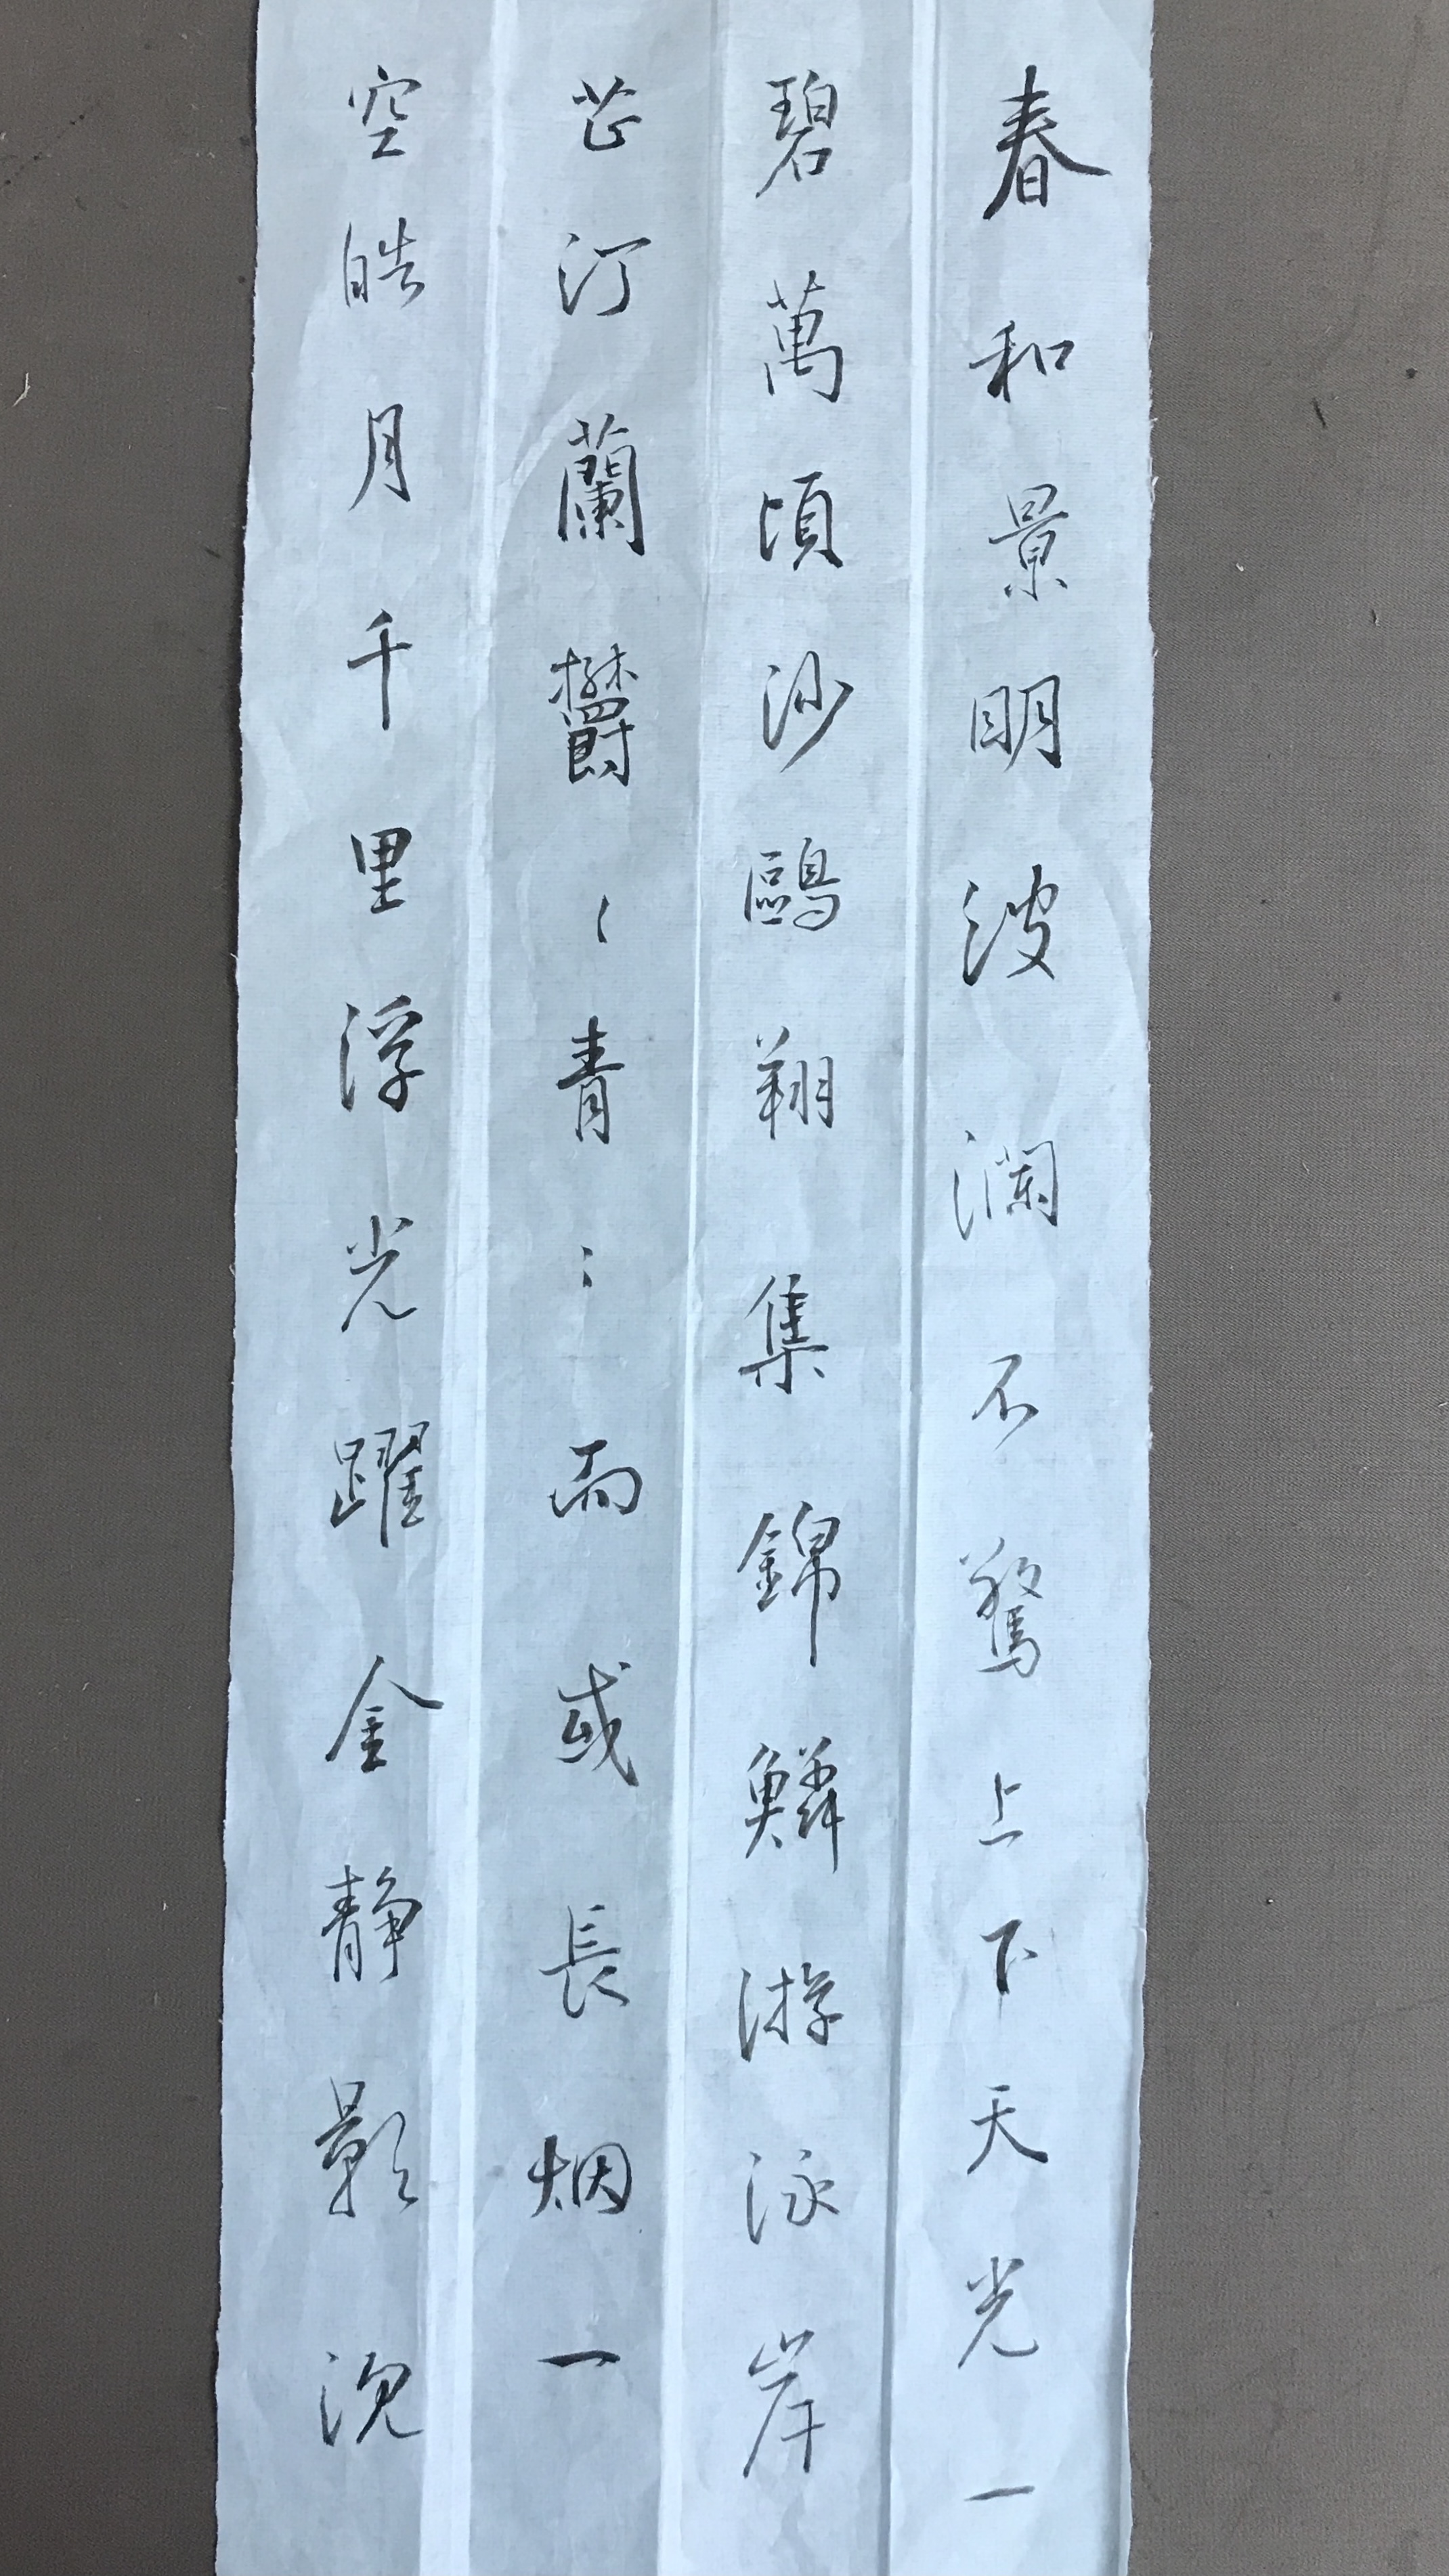 春和景明波瀾不驚上下天光一
碧萬頃沙鷗翔集錦鱗游泳岸
芷汀蘭欝〻青〻而或長烟一
空皓月千里浮光躍金静影沈